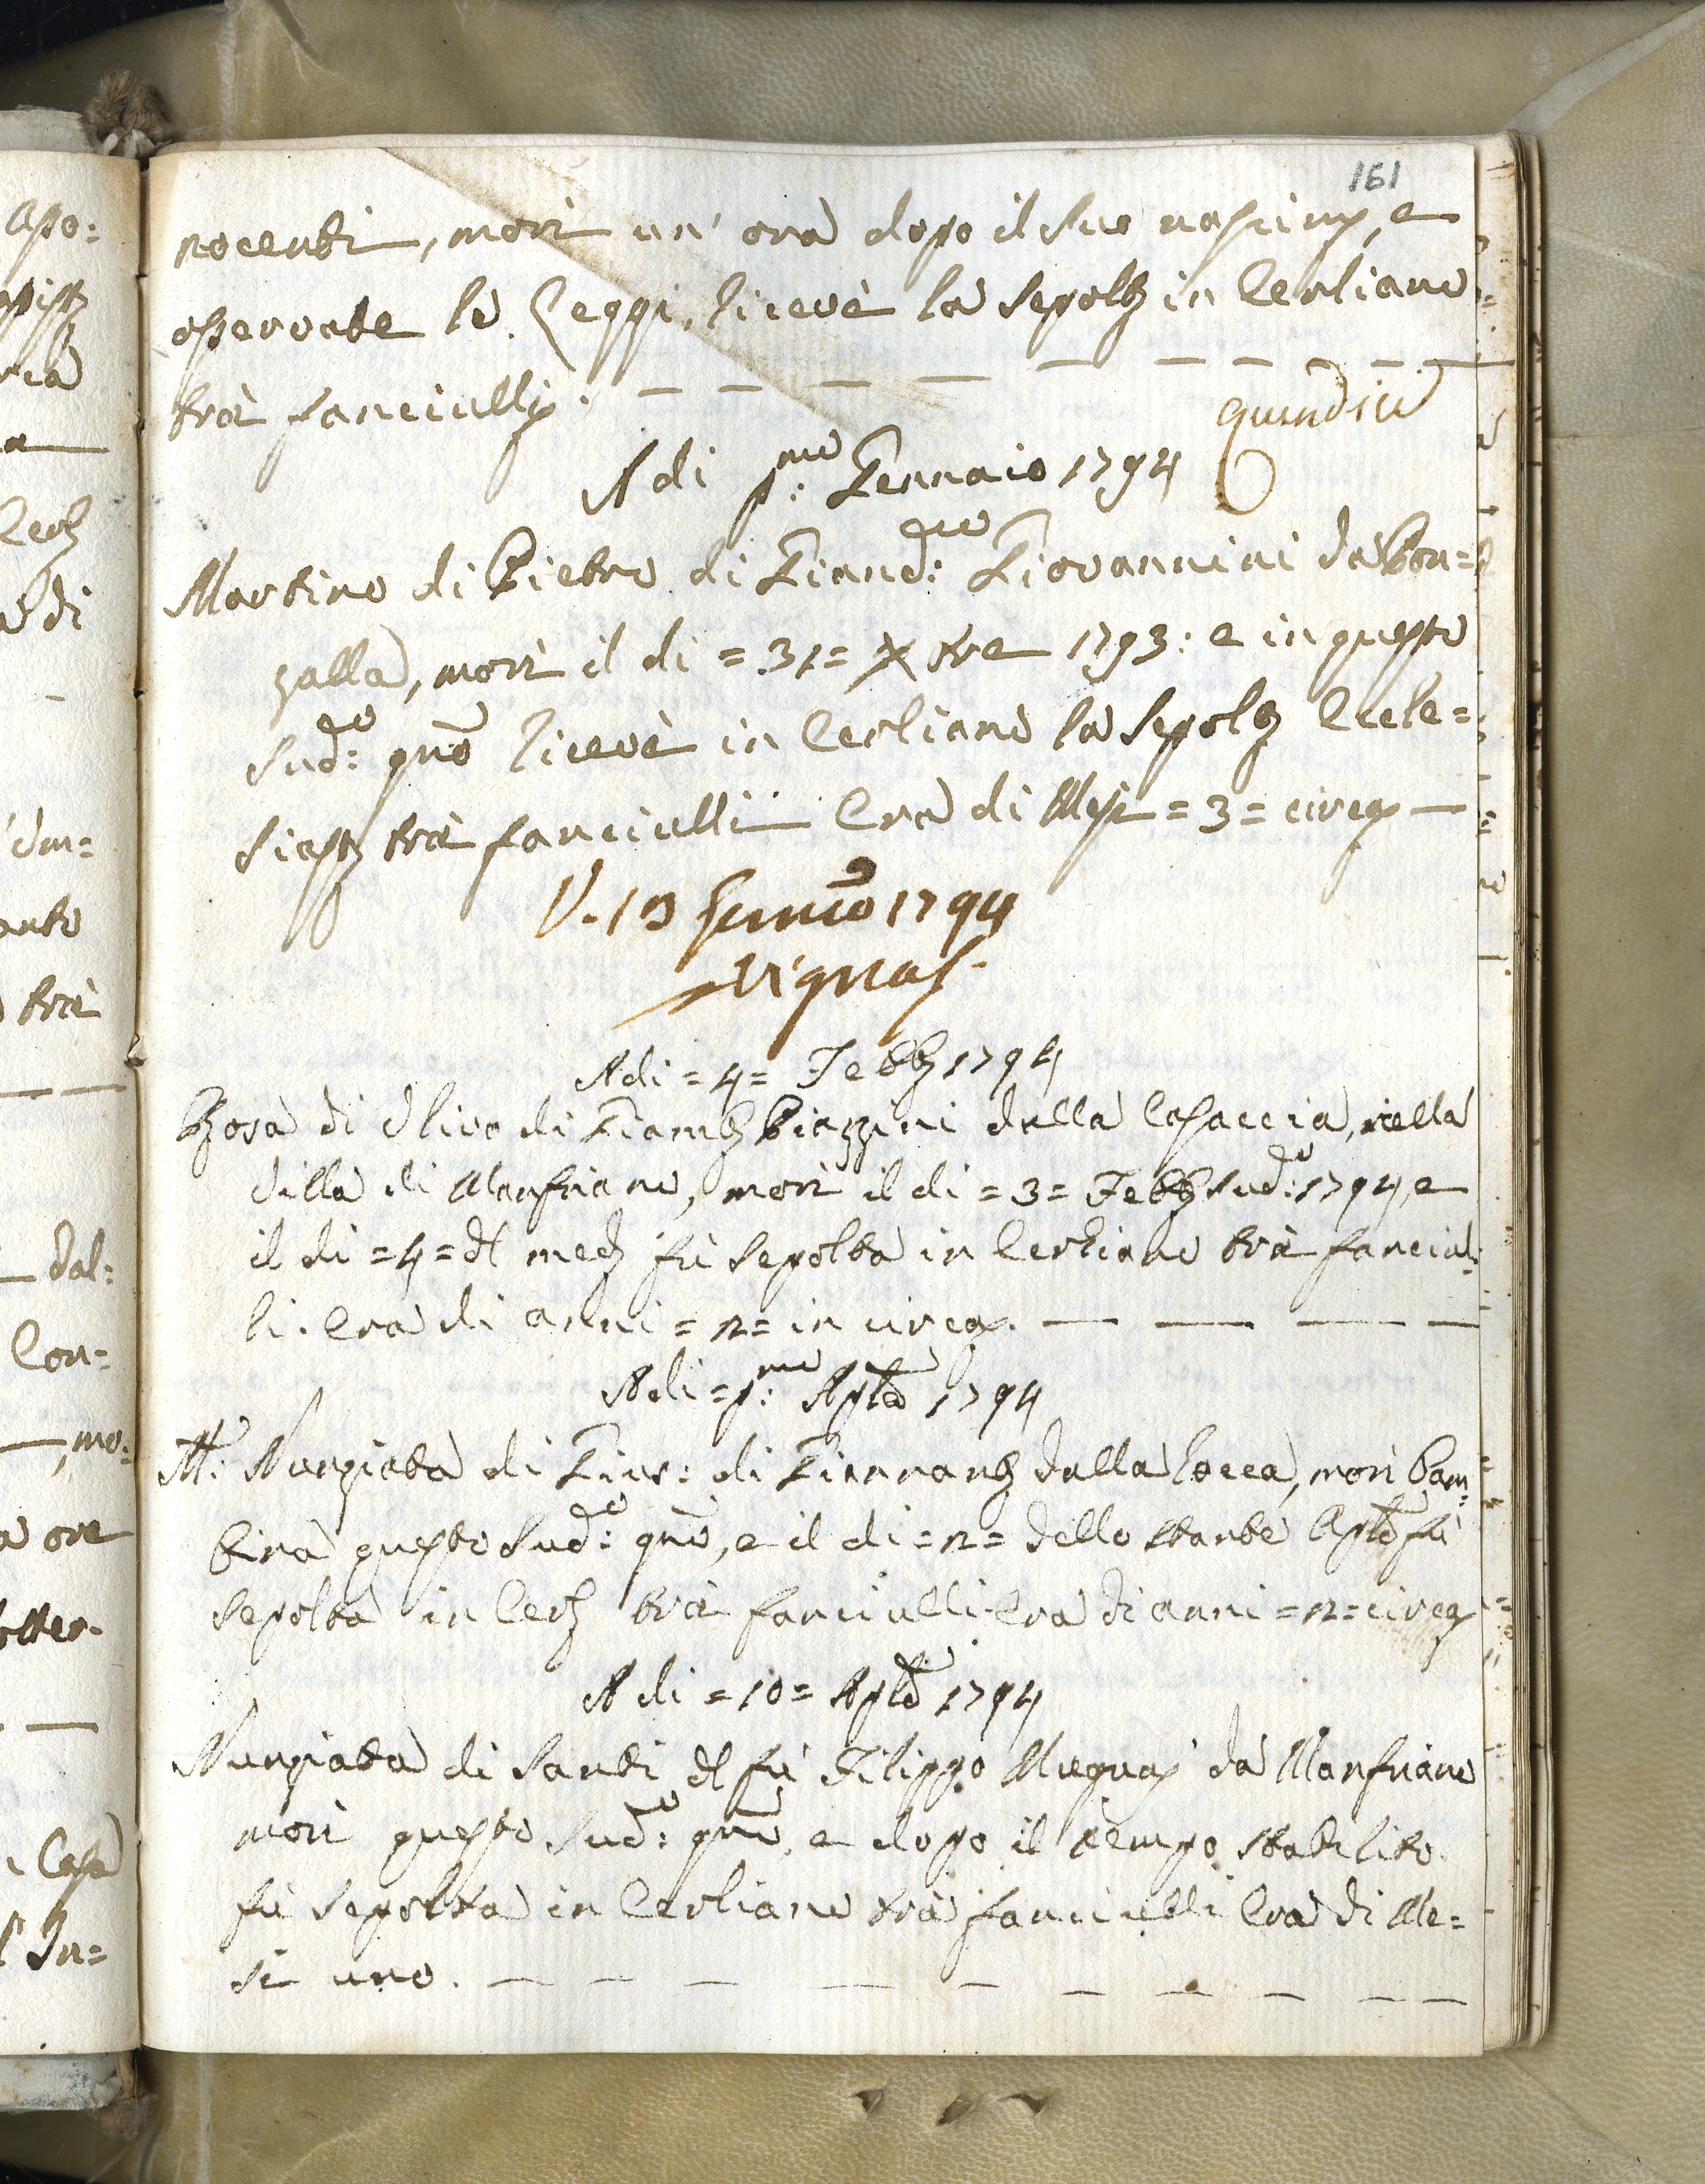 161
nocenti, morì un' ora dopo il suo nascim, e
osservate le Leggi, ricevè la sepolt in Cerliano
trà fanciulli.
quindici
A di p:mo Gennaio 1794
Martino di Pietro di Giand:co Giovannini da Bon=
zalla, morì il di = 31 = Xbre 1793: e in questo
sud:o gno ricevè in Cerliano la sepolt Eccle=
siast trà fanciulli Era di Mesi = 3 = circa
V. 13 Genn.o 1794
Vignas
A di = 4 = Febb 1794
Rosa di Olivo di Giamb Piazzini dalla Casaccia, nella
Villa di Manfriano, morì il di = 3 = Febb sud:o 1794, e
il di = 4 = dl med fù sepolta in Cerliano trà fanciul:
li. Era di anni = 2 = in circa.
A di = p:mo Aple 1794
M: Nunziata di Gius: di Giannant dalla Rocca, morì bam=
bina questo sud:o gno, e il di = 2 = dello stante Aple fù
sepolta in Cerl trà fanciulli. Era di anni = 2 = circa
A di = 10 = Aple 1794
Nunziata di Santi dl fù Filippo Mugnai da Manfriano
morì questo sud:o gno, e dopo il tempo stabilito
fù sepolta in Cerliano trà fanciulli Era di Me=
si uno.